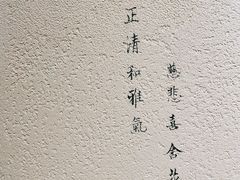 慈悲喜舍花
正清和雅氣